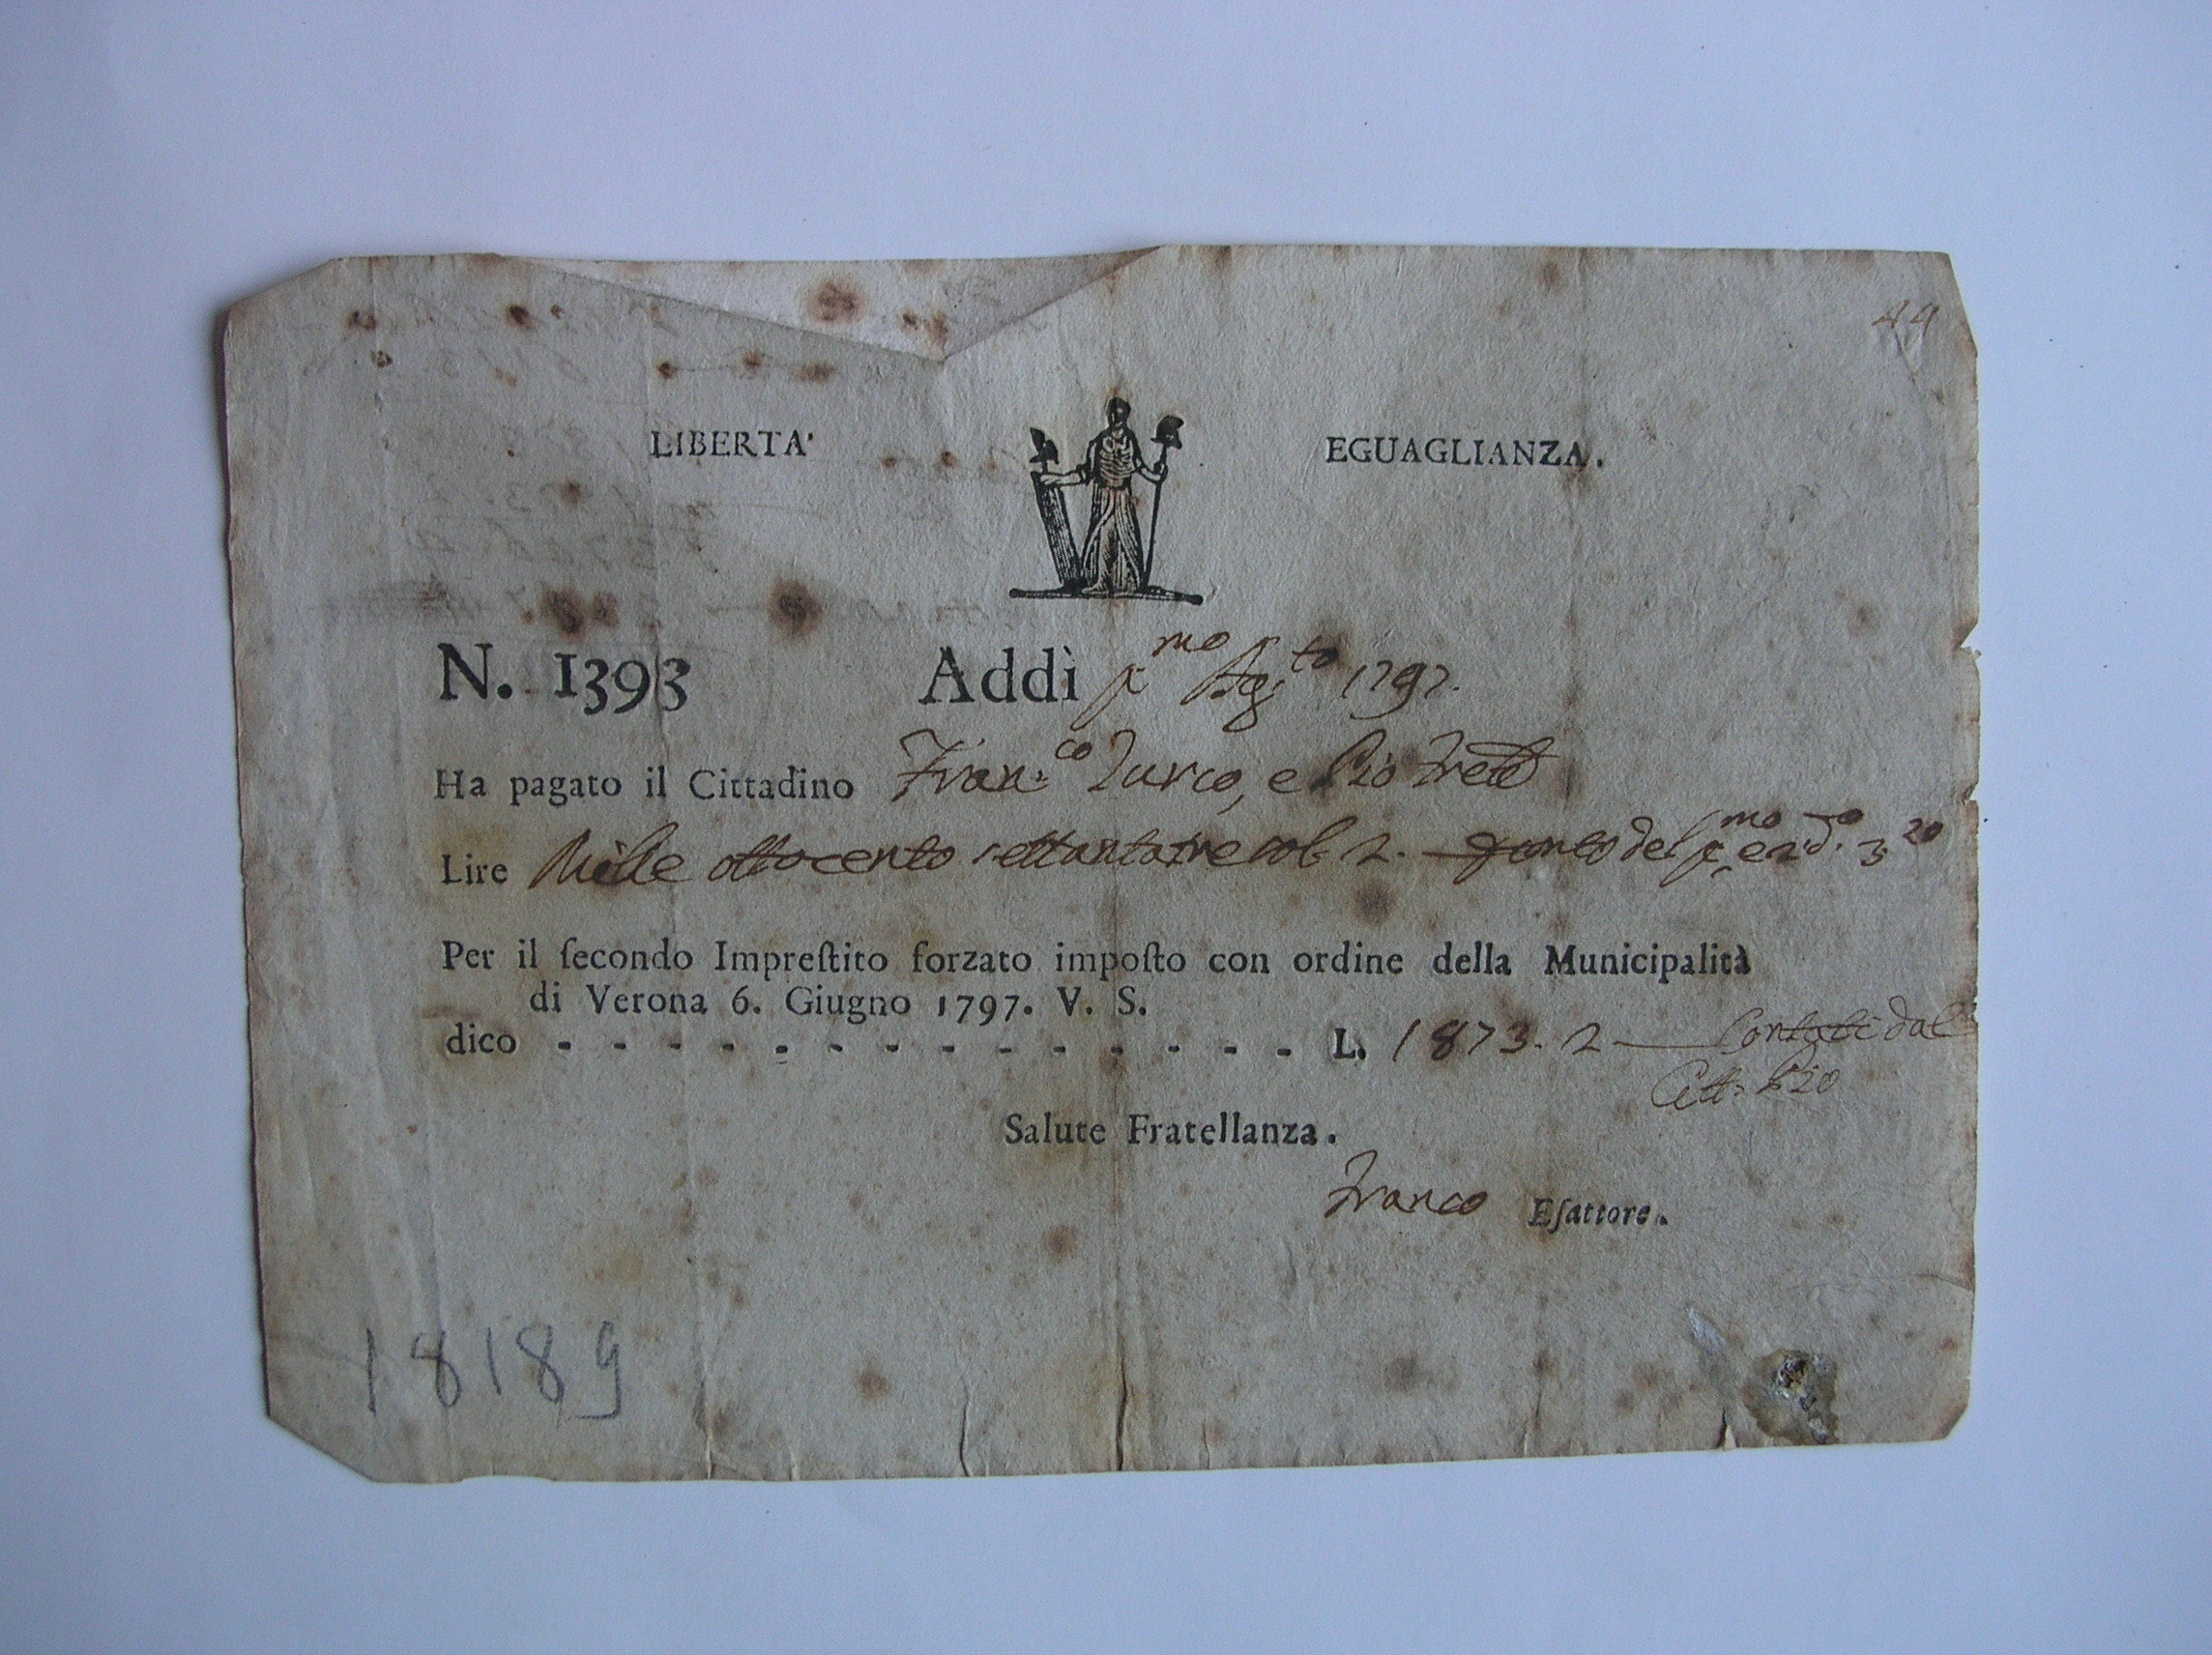 44
LIBERTA' EGUAGLIANZA.
N. 1393 Addì pmo Agto 1797.
Ha pagato il Cittadino Fran:co Turco, e Pio
Lire Mille ottocento settantatre sol: 2. del pmo e 2do 3zo
Per il ſecondo Impreſtito forzato impoſto con ordine della Municipalità
di Verona 6. Giugno 1797. V. S.
dico - - - - - - - - - - - - - - L. 1873. 2 — Contati dal
Citt: Pio
Salute Fratellanza.
Franco Eſattore.
18189